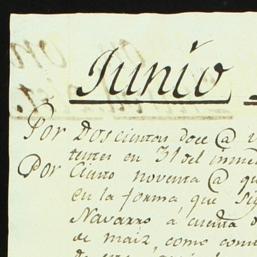 Junio
Por Doscientas doce @
tentes en 31 del inme
Por Ciento noventa @ qu
en la forma, que sig
Navarro, a cuenta d
de maiz, como com